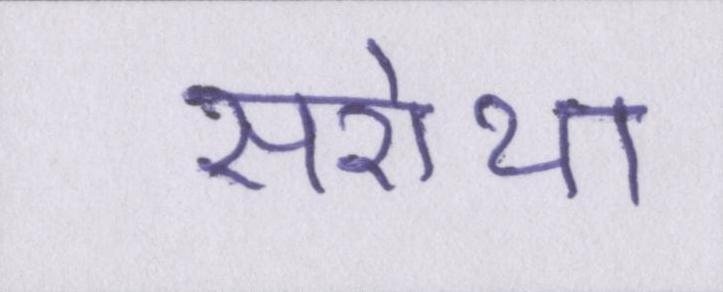 सरोथा